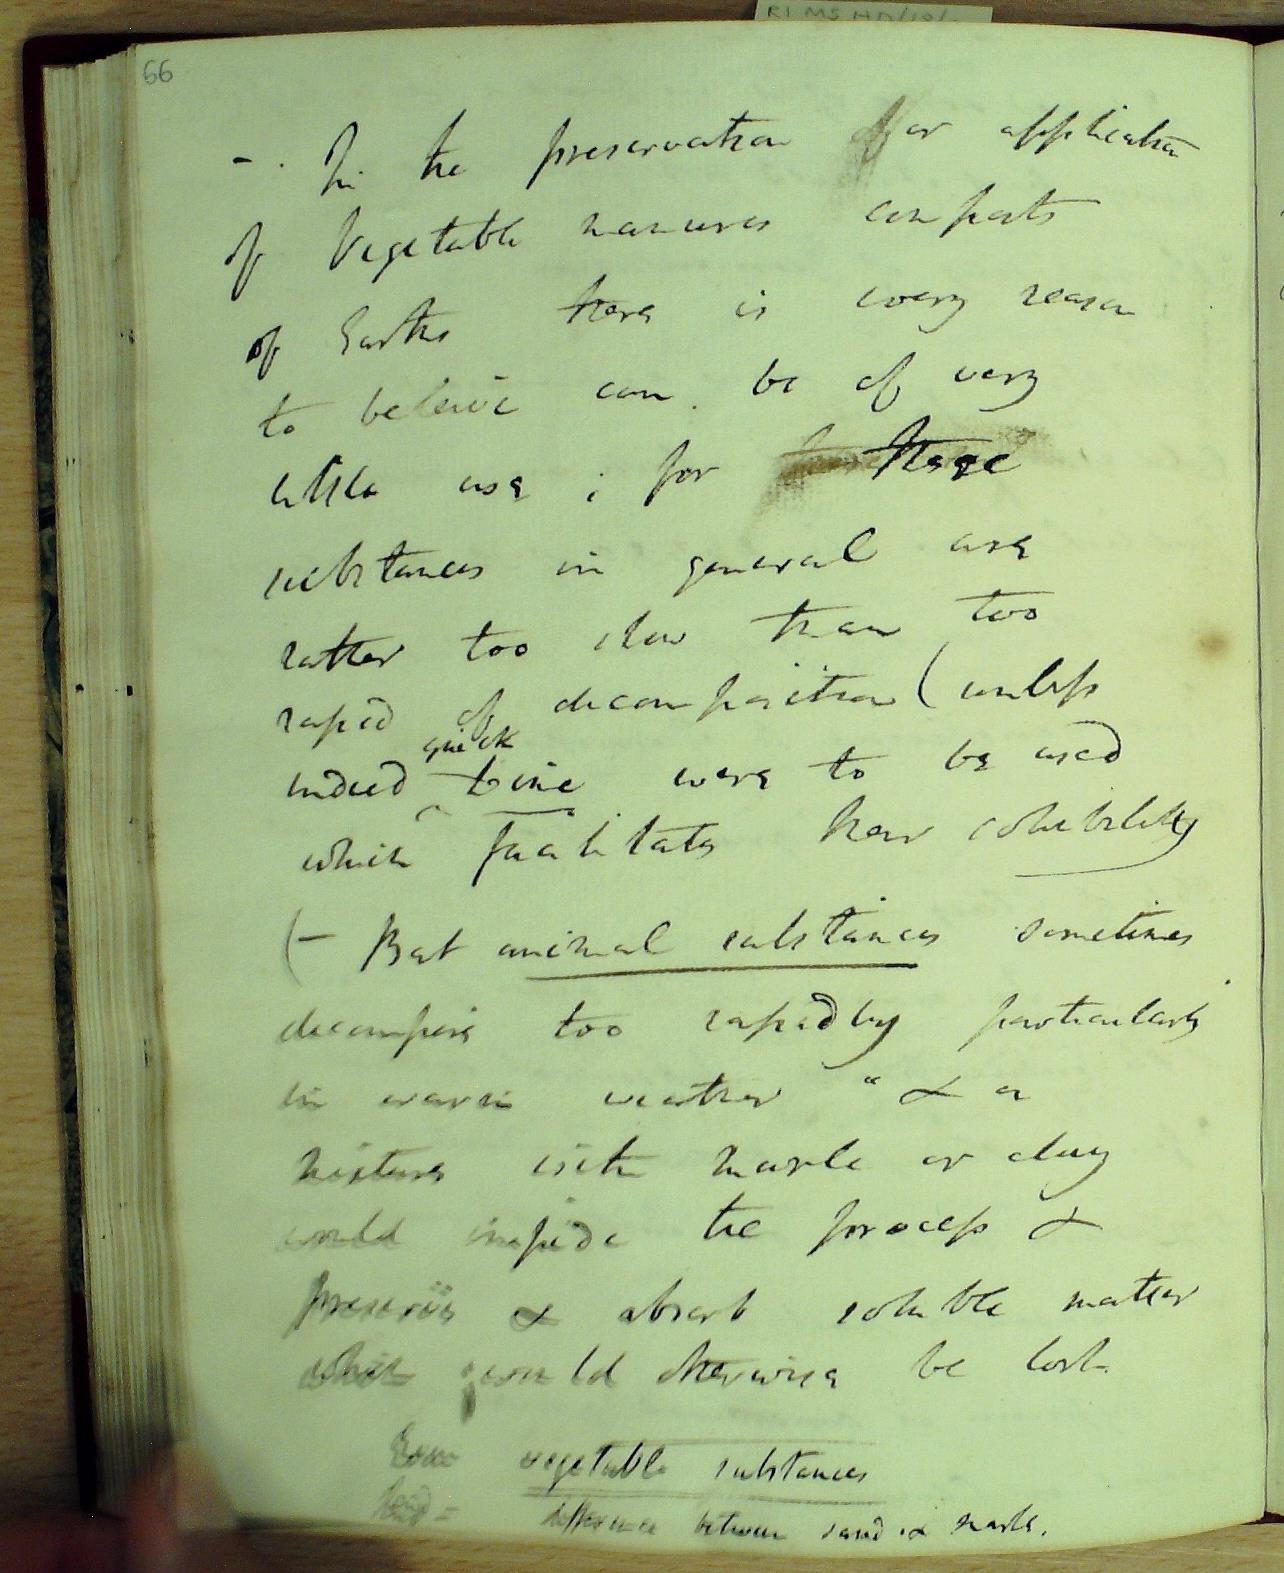 RI MS HD/19/
66
- In the preservation for application
of Vegetable manures composts
of Earths there is every reason
to beleive can be of very
little use ; for these
substances in general are
rather too slow than too
rapid of decomposition (unless
quick
indeed lime were to be used
which facilitates their solubility
(- But animal substances sometimes
decompose too rapidly particularly
in warm weather " & a
mixture with marle or clay
would impede the process &
preserve & absorb soluble matter
which would otherwise be lost.
vegetable substances
difference between sand & marle.